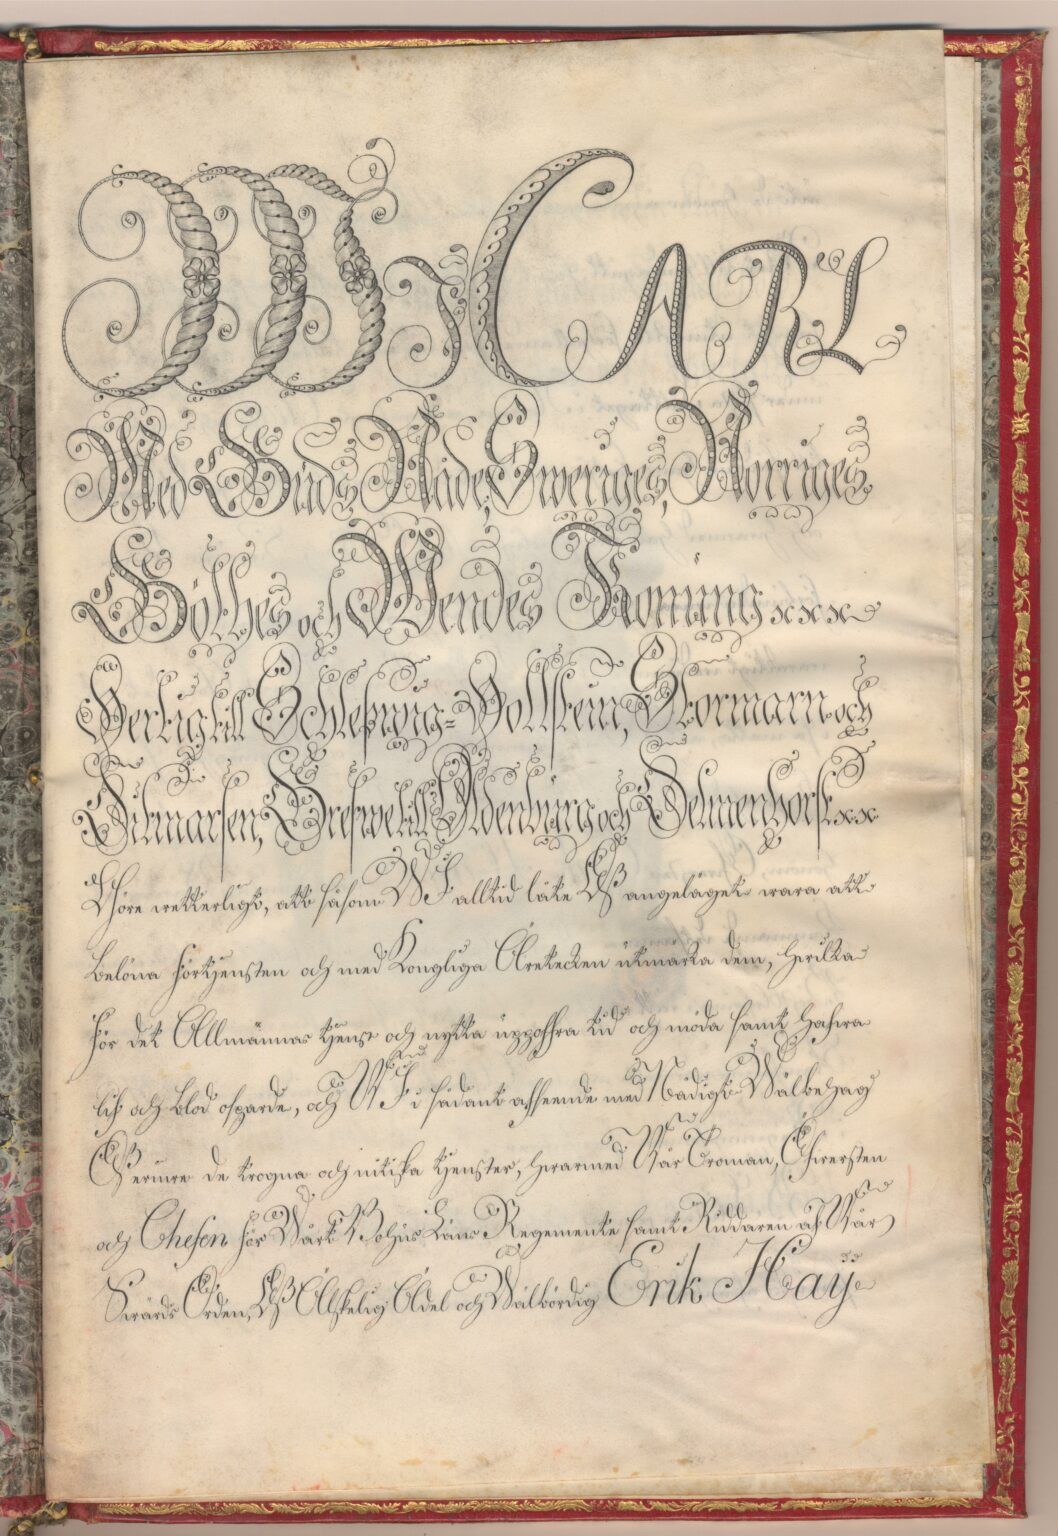 WJ CARL
Med Guds Nåde, Sweriges, Norriges
Göthes och Wendes Konung xxx
Hertig till Schleßwig-Hollstein, Stormarn och
Ditmarsen, Grefwe till Oldenburg och Delmenhorst xx
Göre wetterligt, att såsom WJ alltid låte Oß angeläget wara att
belöna förtjensten och med Kongliga Äretecken utmärka dem, hwilka
för det Allmännas tjenst och nytta uppoffra tid och möda samt hafwa
lif och blod ospardt, och WJ i sådant afseende med Nådigt Wälbehag
Oß erinre de trogna och nitiska tjenster, hwarmed Wår Troman, Öfwersten
och Chefen för Wårt Bohus Läns Regemente samt Riddaren af Wår
Swärds Orden, Oß Älskelig Ädel och Wälbördig Erik Haij